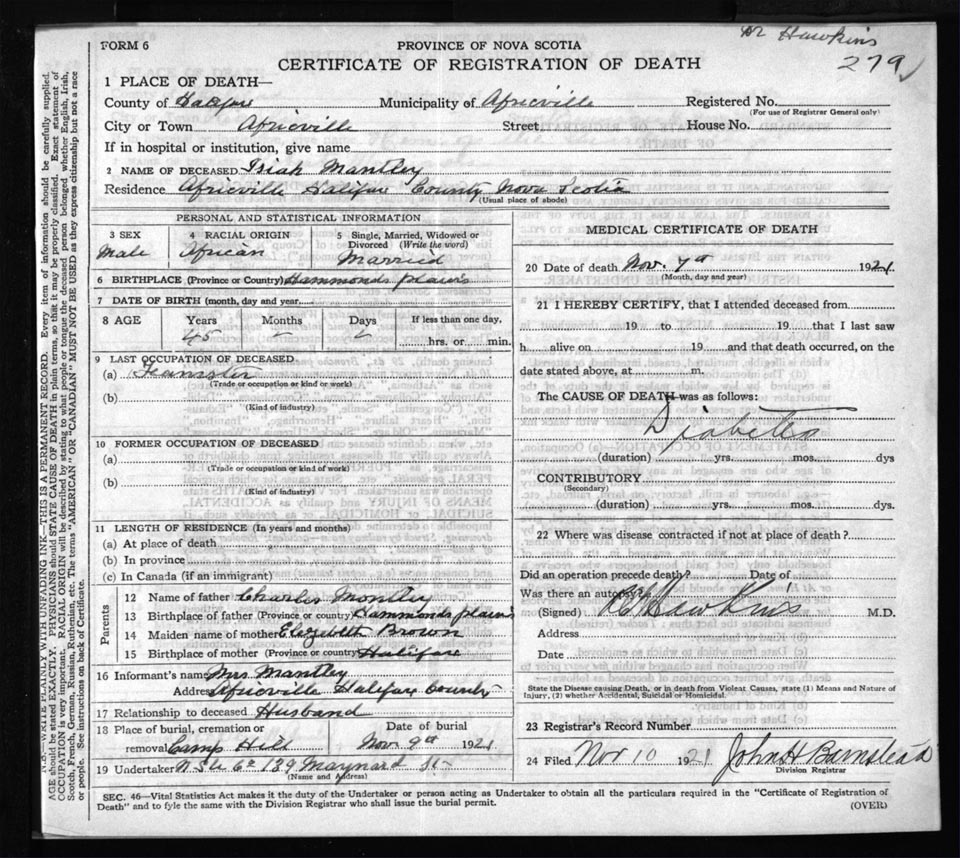 Dr Hawkins
279
FORM 6
PROVINCE OF NOVA SCOTIA
CERTIFICATE OF REGISTRATION OF DEATH
1 PLACE OF DEATH—
County of Halifax Municipality of Africville Registered No.
(For use of Registrar General only)
City or Town Africville Street House No.
If in hospital or institution, give name
2 NAME OF DECEASED Isiah Mantley
Residence Africville Halifax County Nova Scotia
(Usual place of abode)
PERSONAL AND STATISTICAL INFORMATION
3 SEX 4 RACIAL ORIGIN 5 Single, Married, Widowed or Divorced (Write the word)
Male African Married
6 BIRTHPLACE (Province or Country) Hammonds plains
7 DATE OF BIRTH (month, day and year)
8 AGE Years Months Days If less than one day.
45 hrs. or min.
9 LAST OCCUPATION OF DECEASED
(a) Teamster
(Trade or occupation or kind of work)
(b)
(Kind of industry)
10 FORMER OCCUPATION OF DECEASED
(a)
(Trade or occupation or kind of work)
(b)
(Kind of industry)
11 LENGTH OF RESIDENCE (In years and months)
(a) At place of death
(b) In province
(c) In Canada (if an immigrant)
Parents
12 Name of father Charles Montley
13 Birthplace of father (Province or country) Hammonds plains
14 Maiden name of mother Elizebeth Brown
15 Birthplace of mother (Province or country) Halifax
16 Informant's name Mrs Mantley
Address Africville Halifax County
17 Relationship to deceased Husband
18 Place of burial, cremation or removal Camp Hill
Date of burial
Nov 9th 1921
19 Undertaker 139 Maynard St
(Name and Address)
MEDICAL CERTIFICATE OF DEATH
20 Date of death Nov. 7th 1921
(Month, day and year)
21 I HEREBY CERTIFY, that I attended deceased from
19 to 19 that I last saw
h alive on 19 and that death occurred, on the
date stated above, at m.
The CAUSE OF DEATH was as follows:
Diabetes
(duration) yrs. mos. dys
CONTRIBUTORY
(Secondary)
(duration) yrs. mos. dys.
22 Where was disease contracted if not at place of death?
Did an operation precede death? Date of
Was there an autopsy?
(Signed) Hawkins M.D.
Address
Date
State the Disease causing Death, or in death from Violent Causes, state (1) Means and Nature of
Injury, (2) whether Accidental, Suicidal or Homicidal.
23 Registrar's Record Number
24 Filed Nov 10 1921 John H Barnstead
Division Registrar
SEC. 46—Vital Statistics Act makes it the duty of the Undertaker or person acting as Undertaker to obtain all the particulars required in the "Certificate of Registration of
Death" and to fyle the same with the Division Registrar who shall issue the burial permit.
(OVER)
N.B.—WRITE PLAINLY WITH UNFADING INK—THIS IS A PERMANENT RECORD. Every item of information should be carefully supplied.
AGE should be stated EXACTLY. PHYSICIANS should STATE CAUSE OF DEATH in plain terms, so that it may be properly classified. Exact statement of
OCCUPATION is very important. RACIAL ORIGIN will be described by stating to what people or tongue the deceased person belonged whether English, Irish,
Scotch, French, German, Russian, Ruthenian, etc. The terms "AMERICAN" OR "CANADIAN" MUST NOT BE USED as they express citizenship but not a race
or people. See instructions on back of Certificate.